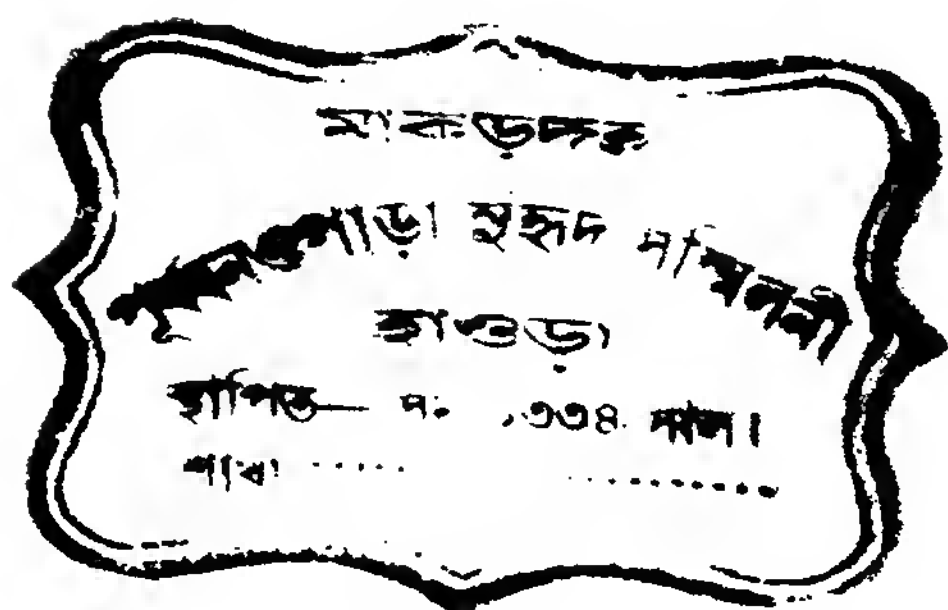 মাকড়দহ
পাড়া সুহৃদ সম্মিলনী
হাওড়া
স্থাপিত— সং ১৩৩৪ সাল।
শাখা ..... ..........